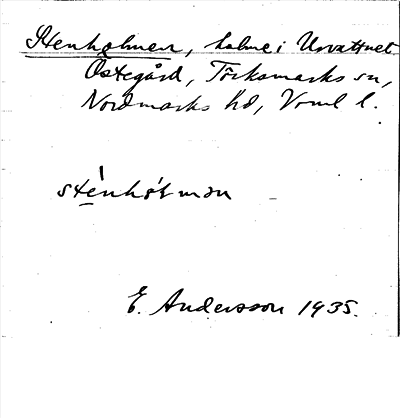 Stenholmen, holme i Urvattnet
Östegård, Törksmarks sn,
Nordmarks hd, Vrml l.
stènhól mən
E. Andersson 1935.